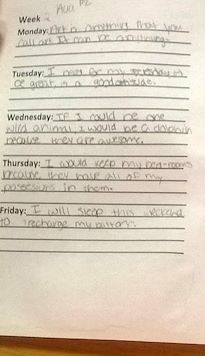 Week 2
Monday: Art is anything that you
call art. It can be anything.
Tuesday: I need for my
be great, is a good attitude.
Wednesday: If I could be one
wild animal, I would be a dolphin
because they are awesome.
Thursday: I would keep my bed-room
because they have all of my
possesions in them.
Friday: I will sleep this weekend
to recharge my battery.